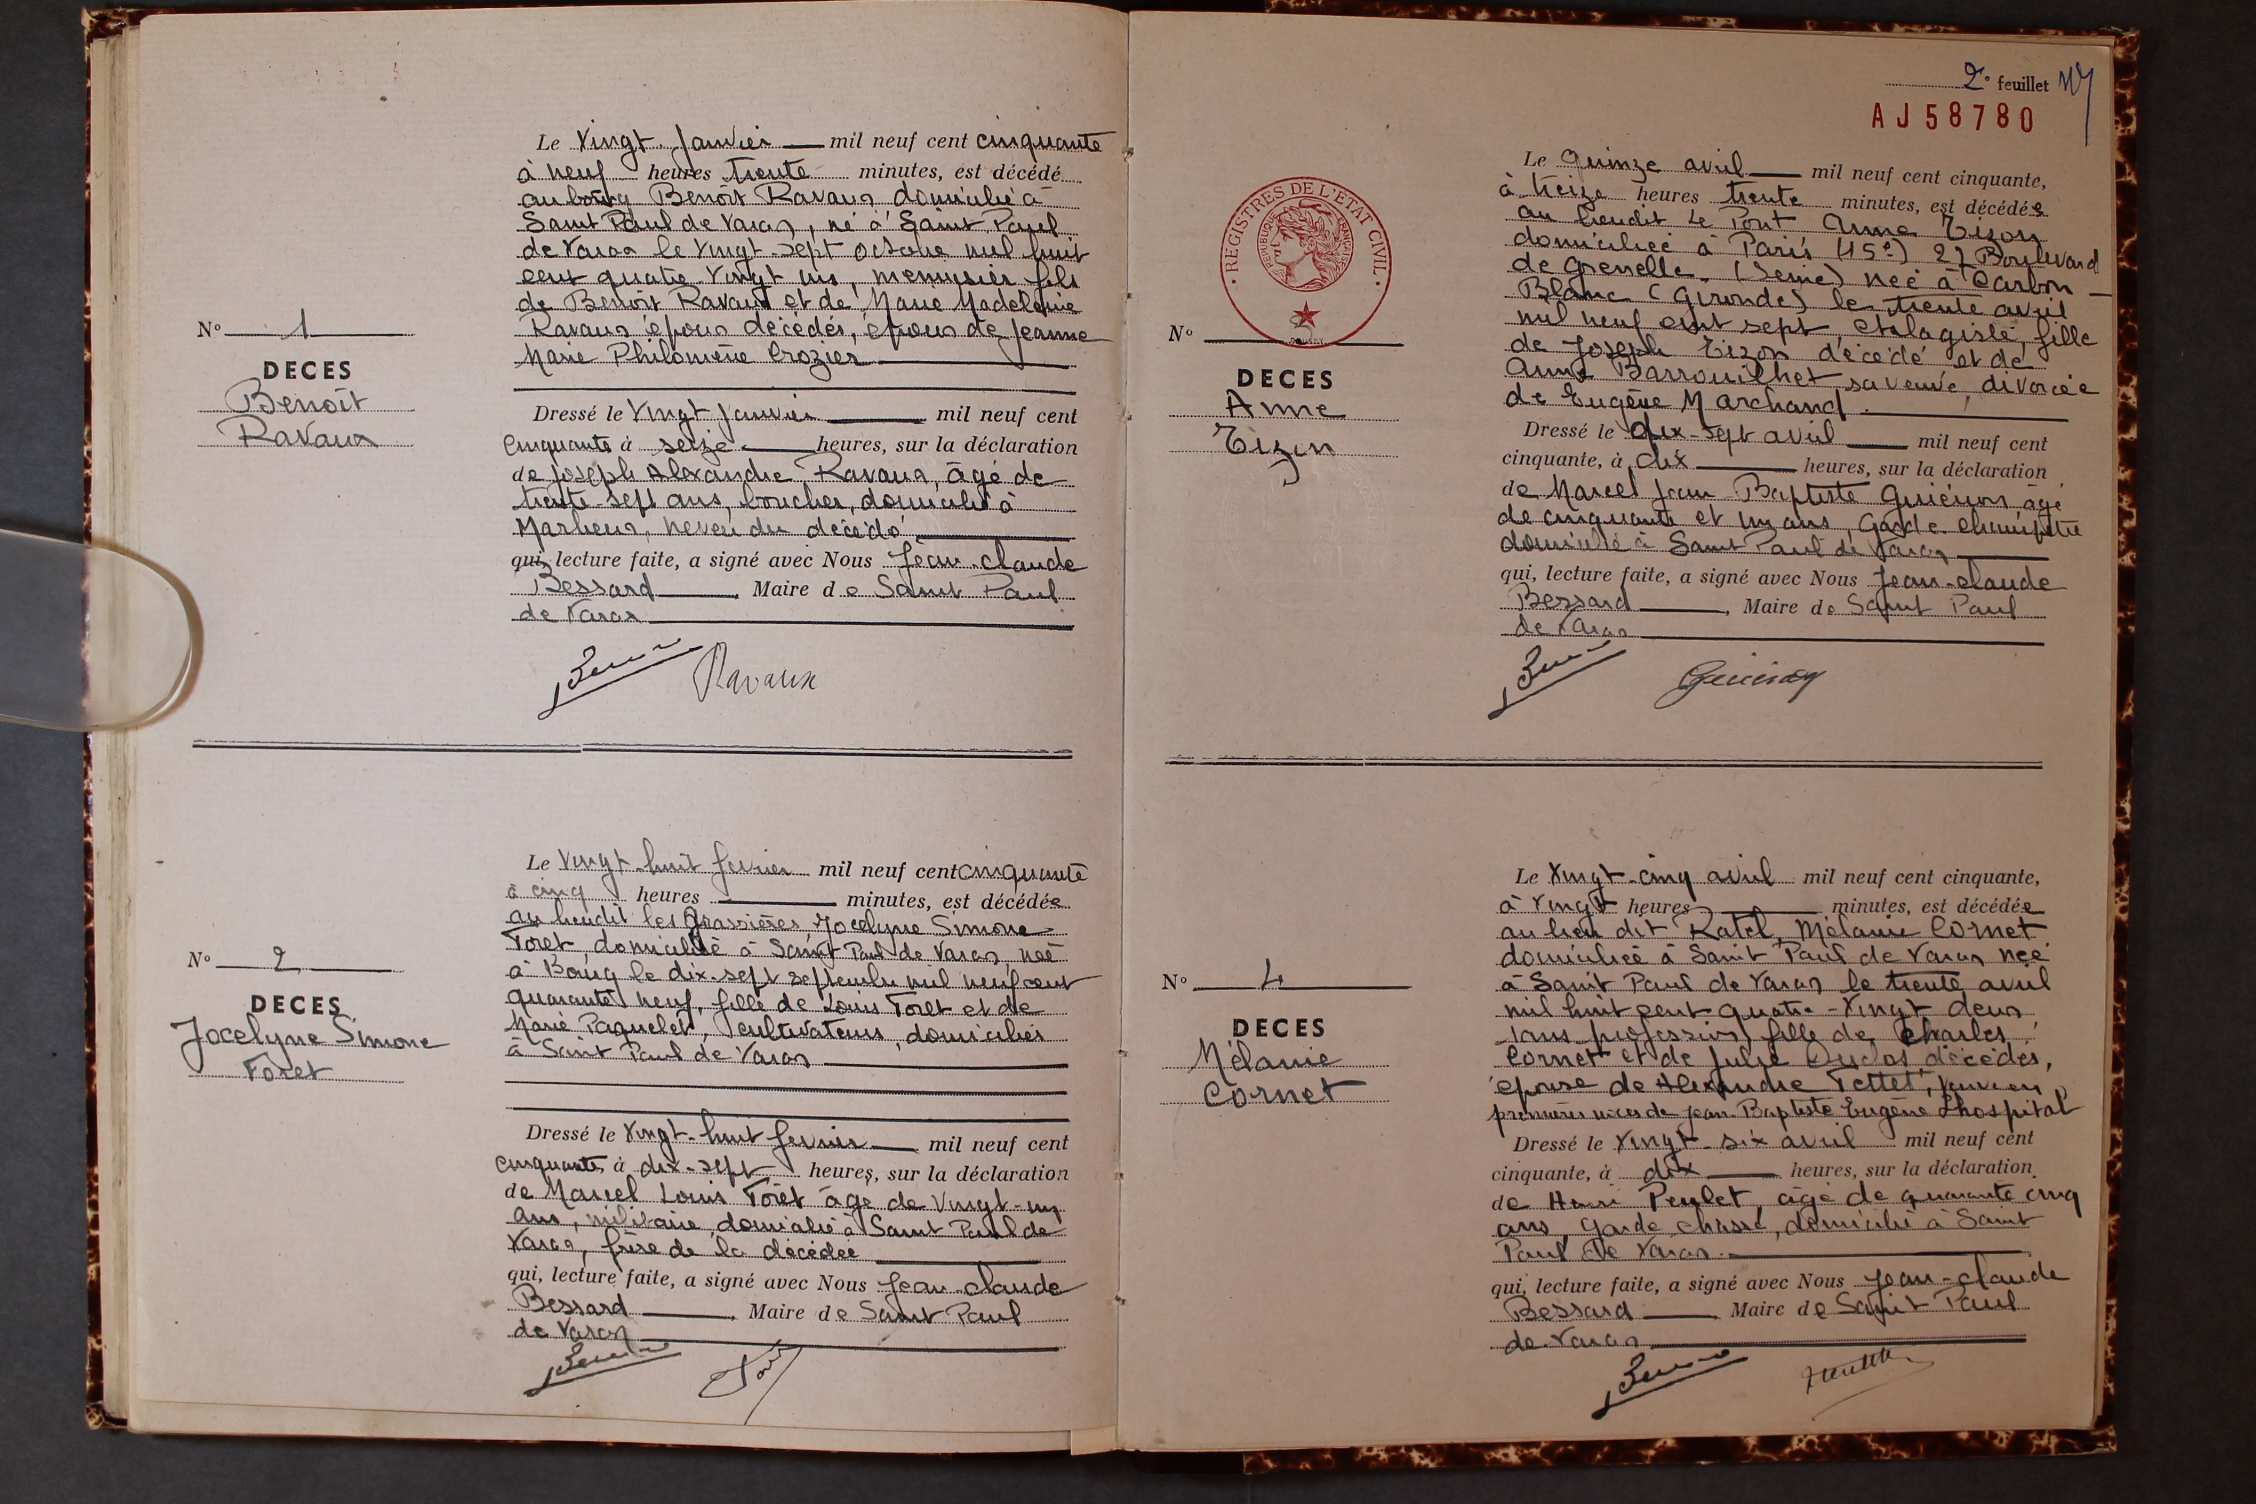 Le Vingt Janvier mil neuf cent cinquante
à neuf heures trente minutes, est décédé
au bourg Benoît Ravaux domicilié à
Saint Paul de Varax, né à Saint Paul
de Varax le vingt-sept octobre mil huit
cent quatre-vingt un, menuisier fils
de Benoit Ravaux et de Marie Madeleine
Ravaux époux décédés, époux de Jeanne
Marie Philomène Crozier
N° 1
DECES
Benoît
Ravaux
Dressé le Vingt Janvier mil neuf cent
cinquante à seize heures, sur la déclaration
de Joseph Alexandre Ravaux, âgé de
trente-sept ans, boucher, domicilié à
Marlieux, neveu du décédé
qui, lecture faite, a signé avec Nous Jean-Claude
Bessard, Maire de Saint Paul
de Varax
Ravaux
Le Vingt-huit fevrier mil neuf cent cinquante
à cinq heures minutes, est décédée
au lieudit les Brassières Jocelyne Simone
Foret, domiciliée à Saint Paul de Varax, née
à Bourg le dix-sept septembre mil neuf cent
quarante neuf, fille de Louis Foret et de
Marie Paquelet, cultivateurs, domiciliés
à Saint Paul de Varax
N° 2
DECES
Jocelyne Simone
Foret
Dressé le Vingt-huit fevrier mil neuf cent
cinquante à dix-sept heures, sur la déclaration
de Marcel Louis Foret âgé de Vingt-un
ans, militaire, domicilié à Saint Paul de
Varax, frère de la décédée
qui, lecture faite, a signé avec Nous Jean-Claude
Bessard, Maire de Saint Paul
de Varax
2e feuillet
AJ58780
REGISTRES DE L'ETAT CIVIL
REPUBLIQUE FRANÇAISE
Le Quinze avril mil neuf cent cinquante,
à treize heures trente minutes, est décédée
au lieudit Le Pont Anne Tizon
domiciliée à Paris (15e) 27 Boulevard
de Grenelle (Seine) née à Carbon-
Blanc (Gironde) le trente avril
mil neuf cent sept, étalagiste, fille
de Joseph Tizon décédé et de
Anne Barrouilhet sa veuve, divorcée
de Eugène Marchand
N° 3
DECES
Anne
Tizon
Dressé le dix-sept avril mil neuf cent
cinquante, à dix heures, sur la déclaration
de Marcel Jean Baptiste Guiénon âgé
de cinquante et un ans, Garde champêtre
domicilié à Saint Paul de Varax
qui, lecture faite, a signé avec Nous Jean-Claude
Bessard, Maire de Saint Paul
de Varax
Le Vingt-cinq avril mil neuf cent cinquante,
à Vingt heures minutes, est décédée
au lieu dit Ratel, Mélanie Cornet
domiciliée à Saint Paul de Varax née
à Saint Paul de Varax le trente avril
mil huit cent quatre-vingt deux
sans profession, fille de Charles
Cornet et de Julie Duclos décédés,
épouse de Alexandre Tettet, veuve en
premières noces de Jean Baptiste Eugène Lhospital
N° 4
DECES
Mélanie
Cornet
Dressé le Vingt-six avril mil neuf cent
cinquante, à dix heures, sur la déclaration
de Henri Peulet, âgé de quarante cinq
ans, Garde chasse, domicilié à Saint
Paul de Varax
qui, lecture faite, a signé avec Nous Jean-Claude
Bessard Maire de Saint Paul
de Varax